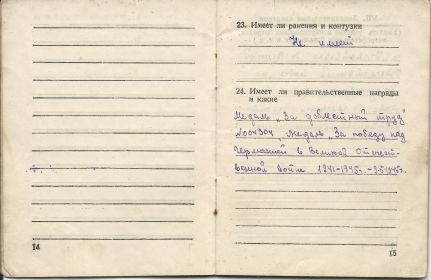 14
23. Имеет ли ранения и контузии
Не имеет
24. Имеет ли правительственные награды
и какие
Медаль „За доблестный труд"
№004304, Медаль „За победу над
Германией в Великой Отечест-
венной войне 1941-1945г.
15